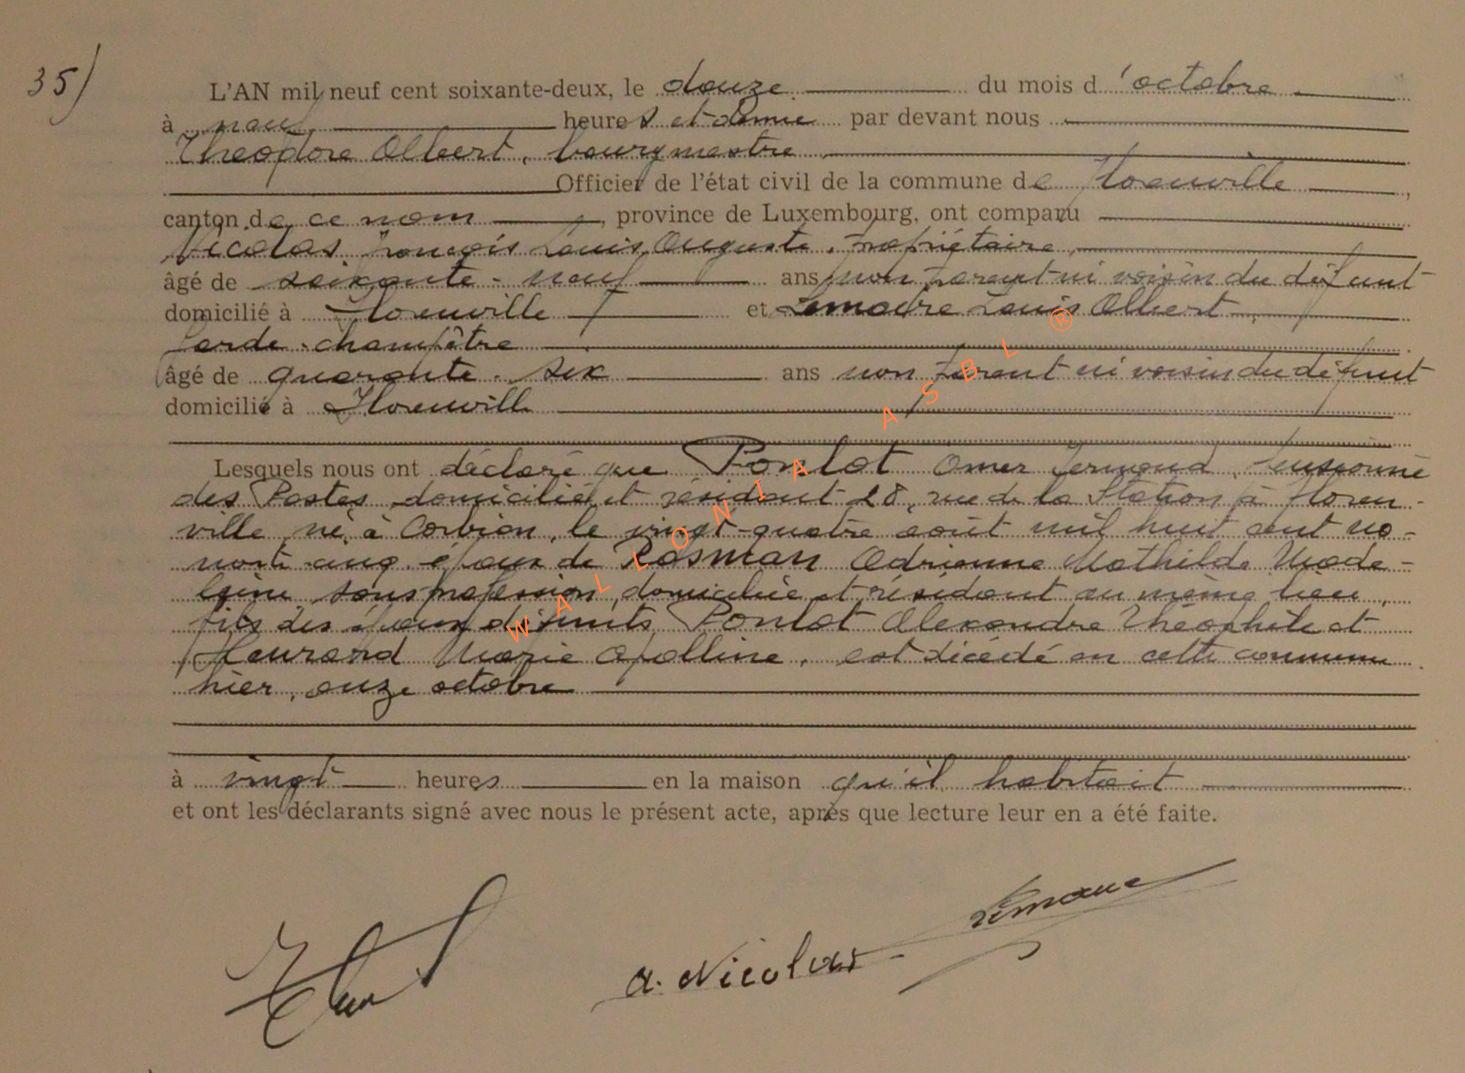 35)
L'AN mil neuf cent soixante-deux, le douze du mois d'octobre
à neuf heures et demie par devant nous
Théodore Albert, bourgmestre
Officier de l'état civil de la commune de Florenville,
canton de ce nom, province de Luxembourg, ont comparu
Nicolas François Louis Auguste, propriétaire,
âgé de soixante-neuf ans non parent ni voisin du défunt
domicilié à Florenville et Lemaire Louis Albert,
Garde-champêtre
âgé de quarante-six ans non parent ni voisin du défunt
domicilié à Florenville
Lesquels nous ont déclaré que Ponlot Omer Fernand, pensionné
des Postes, domicilié et résidant 28, rue de la Station à Floren-
ville, né à Corbion, le vingt-quatre août mil huit cent no-
nante-cinq, époux de Rosman Adrienne Mathilde Made-
leine sans profession, domiciliée et résidant au même lieu,
fils des époux défunts Ponlot Alexandre Théophile et
Marie Apolline, est décédé en cette commune
hier, onze octobre
à vingt heures en la maison qu'il habitait
et ont les déclarants signé avec nous le présent acte, après que lecture leur en a été faite.
A. Nicolas
Lemaire
WALLONIA ASBL ®